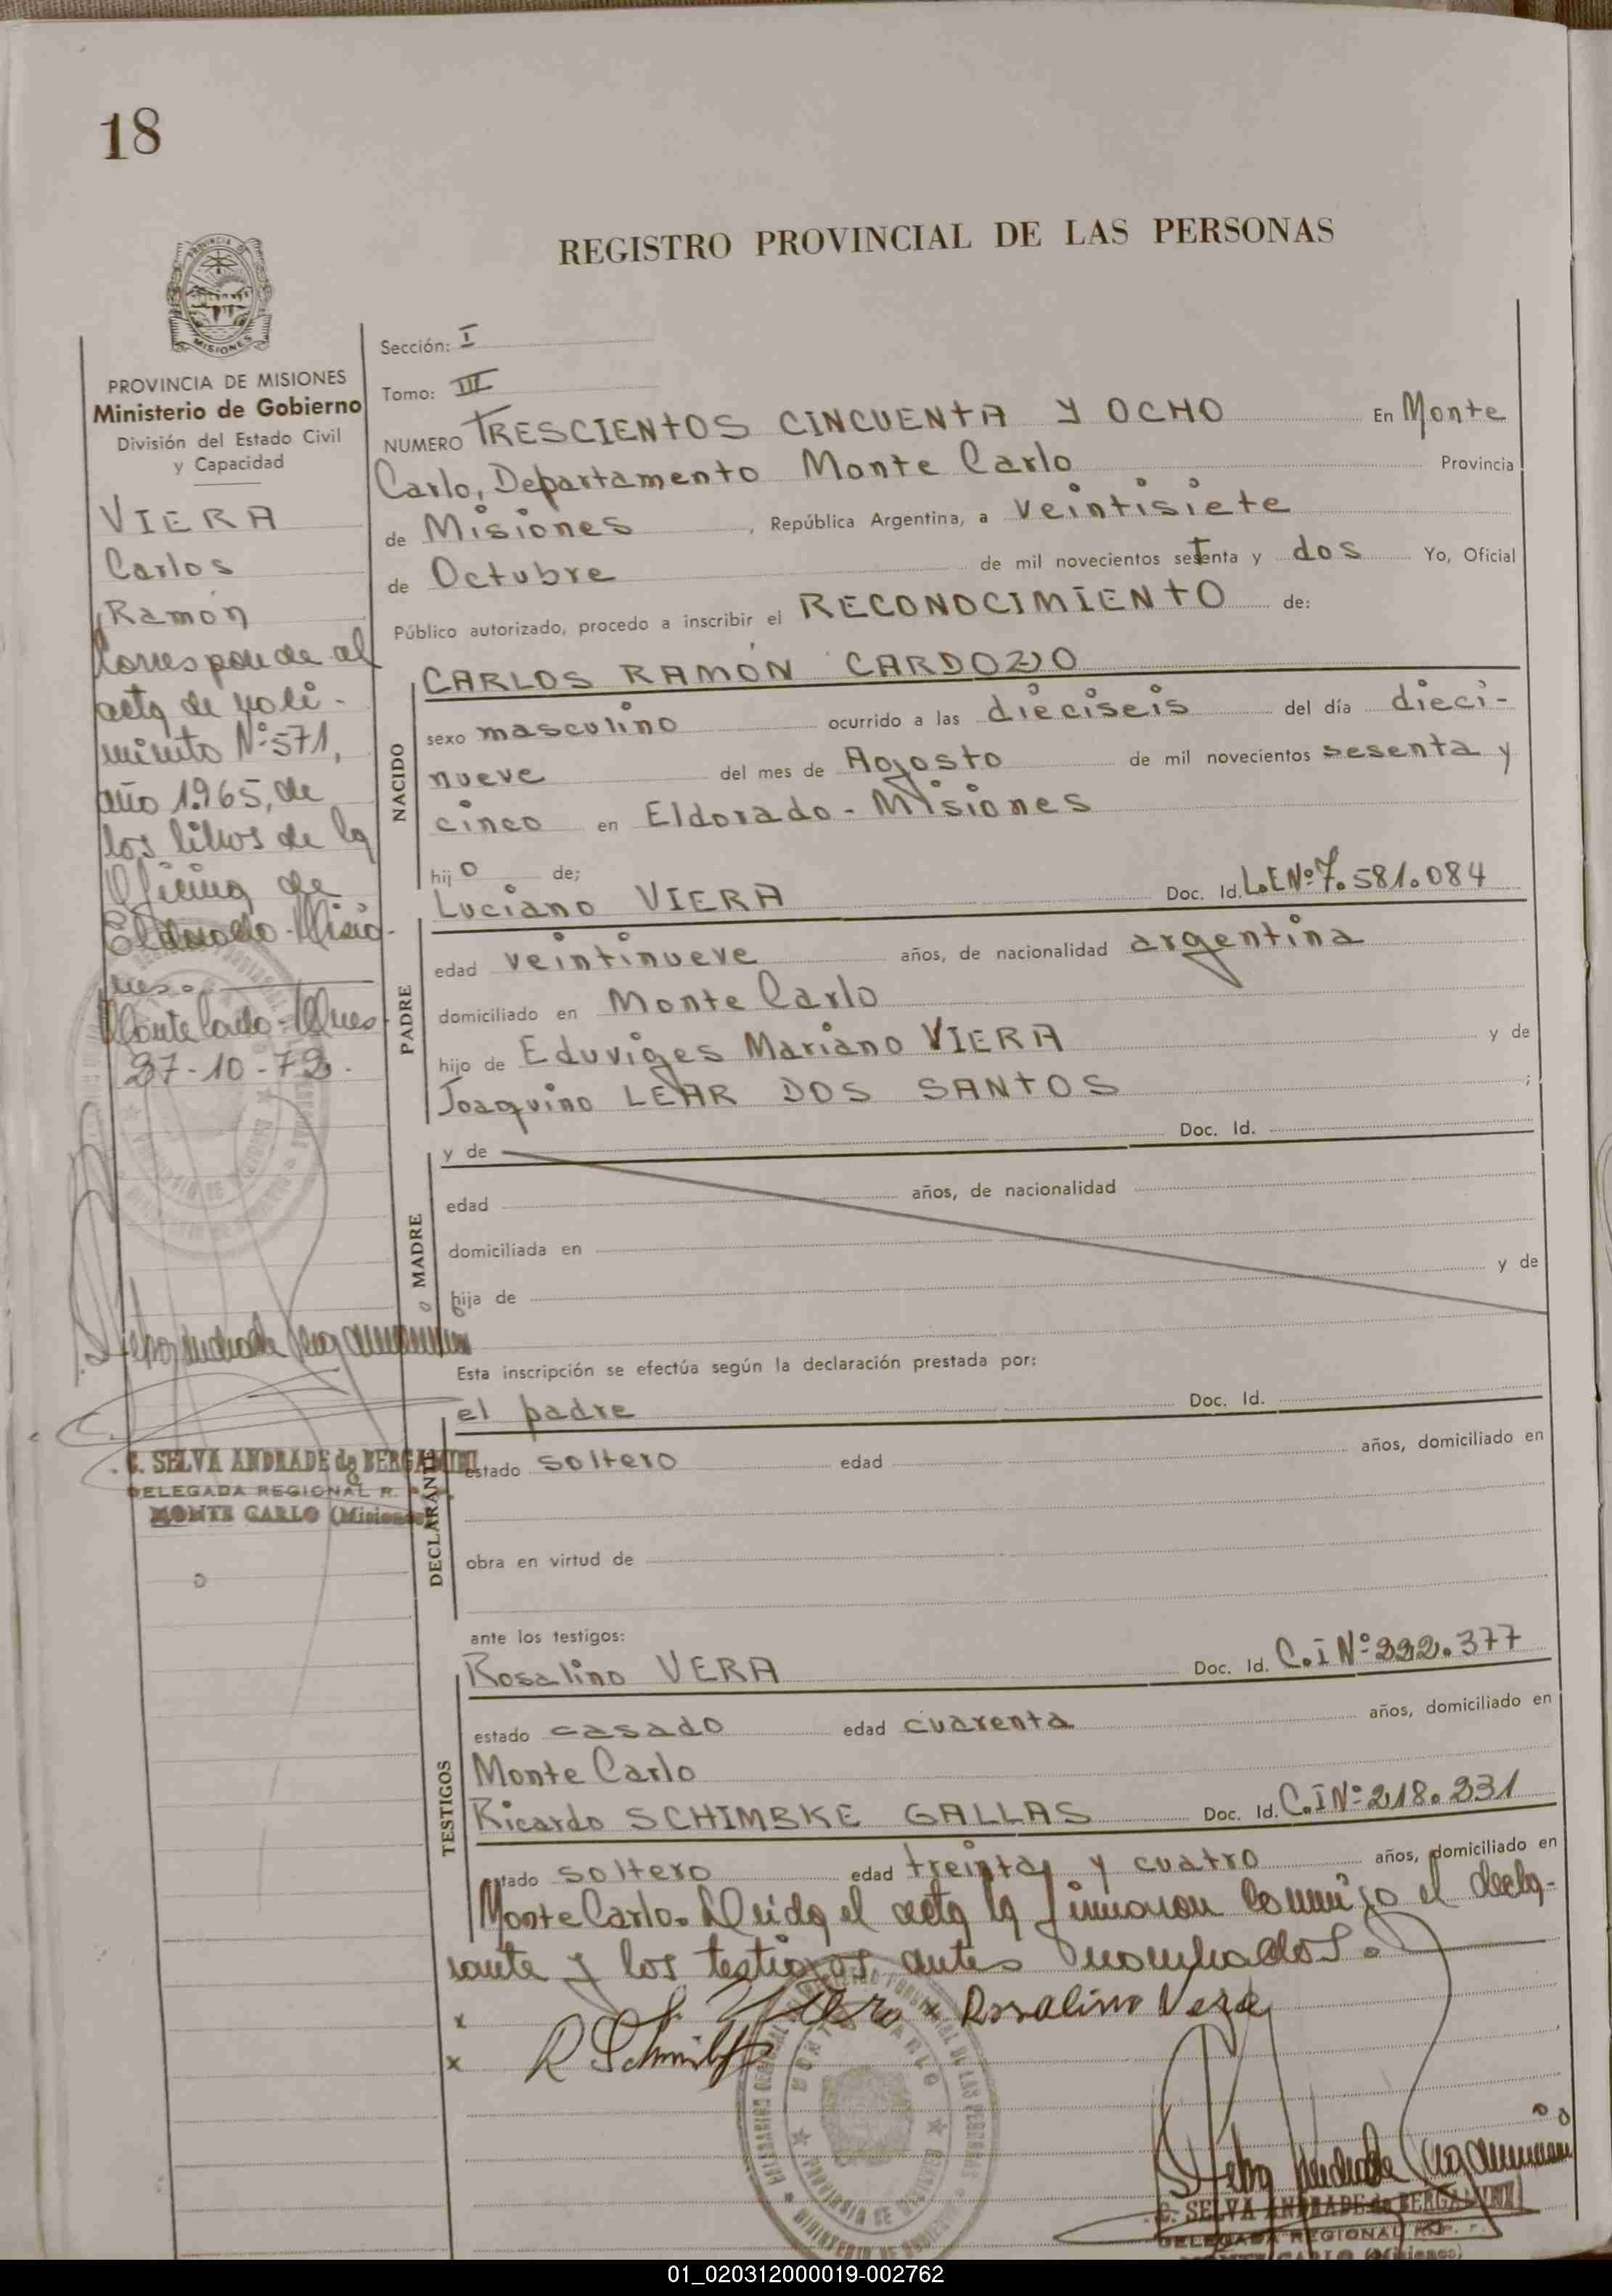 18
REGISTRO PROVINCIAL DE LAS PERSONAS
PROVINCIA DE MISIONES
Ministerio de Gobierno
División del Estado Civil
y Capacidad
VIERA
Carlos
Ramón
Corresponde al
acta de naci-
miento Nº 571,
año 1.965, de
los libros de la
Oficina de
Eldorado - Misio-
nes.
Monte Carlo - Mnes
27-10-72.
C. SELVA ANDRADE de BERGAMINI
DELEGADA REGIONAL R.
MONTE CARLO (Misiones)
Sección: I
Tomo: III
NUMERO TRESCIENTOS CINCUENTA Y OCHO En Monte
Carlo, Departamento Monte Carlo Provincia
de Misiones, República Argentina, a veintisiete
de Octubre de mil novecientos setenta y dos Yo, Oficial
Público autorizado, procedo a inscribir el RECONOCIMIENTO de:
NACIDO
CARLOS RAMÓN CARDOZO
sexo masculino ocurrido a las dieciseis del día dieci-
nueve del mes de Agosto de mil novecientos sesenta y
cinco en Eldorado - Misiones
hijo de;
PADRE
Luciano VIERA Doc. Id. L.E Nº 7.581.084
edad veintinueve años, de nacionalidad argentina
domiciliado en Monte Carlo
hijo de Eduviges Mariano VIERA y de
Joaquino LEAR DOS SANTOS ;
MADRE
y de Doc. Id.
edad años, de nacionalidad
domiciliada en
hija de y de
Esta inscripción se efectúa según la declaración prestada por:
DECLARANTE
el padre Doc. Id.
estado soltero edad años, domiciliado en
obra en virtud de
ante los testigos:
TESTIGOS
Rosalino VERA Doc. Id. C.I Nº 222.377
estado casado edad cuarenta años, domiciliado en
Monte Carlo
Ricardo SCHIMBKE GALLAS Doc. Id. C.I Nº 218.231
estado soltero edad treinta y cuatro años, domiciliado en
Monte Carlo. Leida el acta la firmaron conmigo el decla-
rante y los testigos antes nombrados.
x x Rosalino Vera
x
C. SELVA ANDRADE de BERGAMINI
DELEGADA REGIONAL
MONTE CARLO (Misiones)
01_020312000019-002762